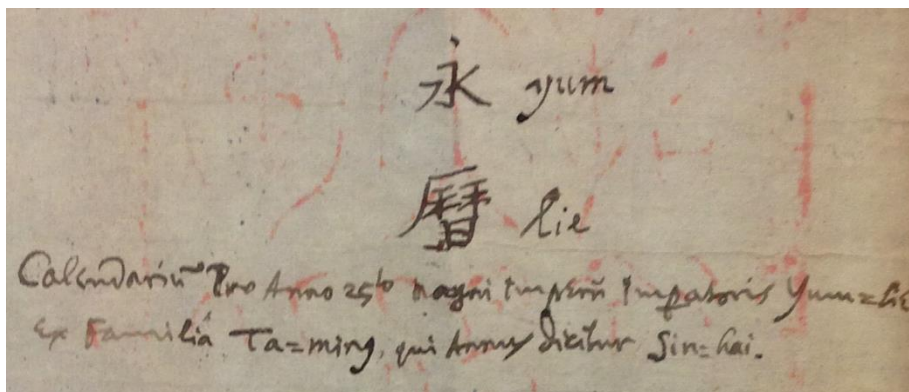 永 yum
曆 lie
Calendariū Pro Anno 25to magni Imperii Imperatoris Yum=lie
Ex Familiâ Ta=ming, qui Annus dicitur Sin=hai.